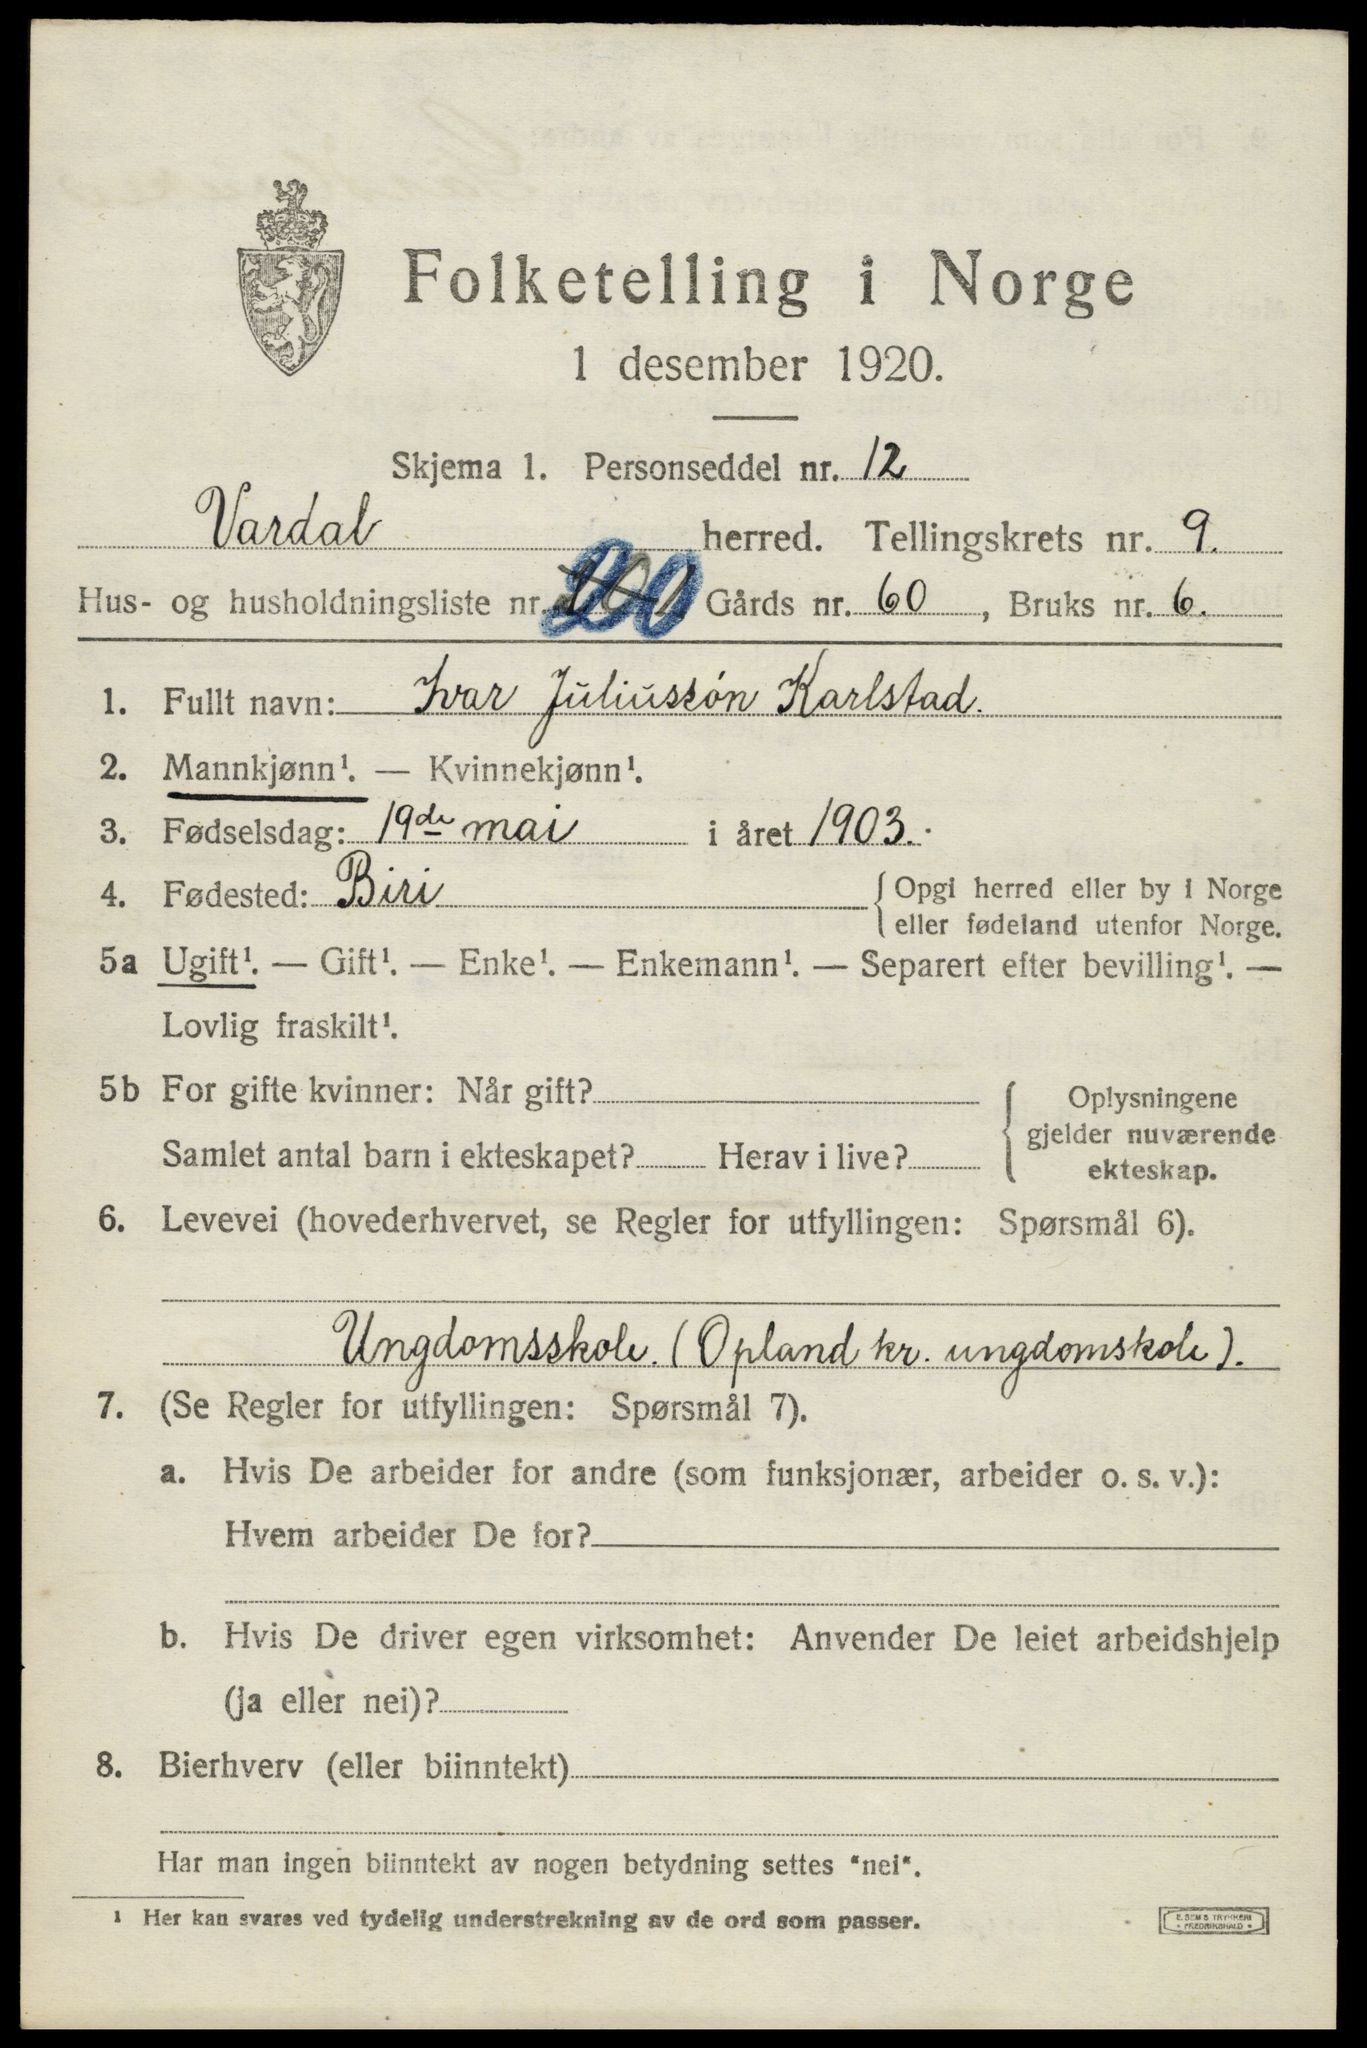 Folketelling i Norge
1 desember 1920.
Skjema 1. Personseddel nr. 12
Vardal herred. Tellingskrets nr. 9.
Hus- og husholdningsliste nr. 200 Gårds nr. 60, Bruks nr. 6.
1. Fullt navn: Ivar Juliussøn Karlstad.
2. Mannkjønn¹. — Kvinnekjønn¹.
3. Fødselsdag: 19de mai i året 1903.
4. Fødested: Biri {Opgi herred eller by i Norge
eller fødeland utenfor Norge.
5a Ugift¹. — Gift¹. — Enke¹. — Enkemann¹. — Separert efter bevilling¹. —
Lovlig fraskilt¹.
5b For gifte kvinner: Når gift?
Samlet antal barn i ekteskapet? Herav i live?
{Oplysningene
gjelder nuværende
ekteskap.
6. Levevei (hovederhvervet, se Regler for utfyllingen: Spørsmål 6).
Ungdomsskole. (Opland kr. ungdomskole).
7. (Se Regler for utfyllingen: Spørsmål 7).
a. Hvis De arbeider for andre (som funksjonær, arbeider o. s. v.):
Hvem arbeider De for?
b. Hvis De driver egen virksomhet: Anvender De leiet arbeidshjelp
(ja eller nei)?
8. Bierhverv (eller biinntekt)
Har man ingen biinntekt av nogen betydning settes "nei".
¹ Her kan svares ved tydelig understrekning av de ord som passer.
E. SEM S TRYKKERI
• FREDRIKSHALD •